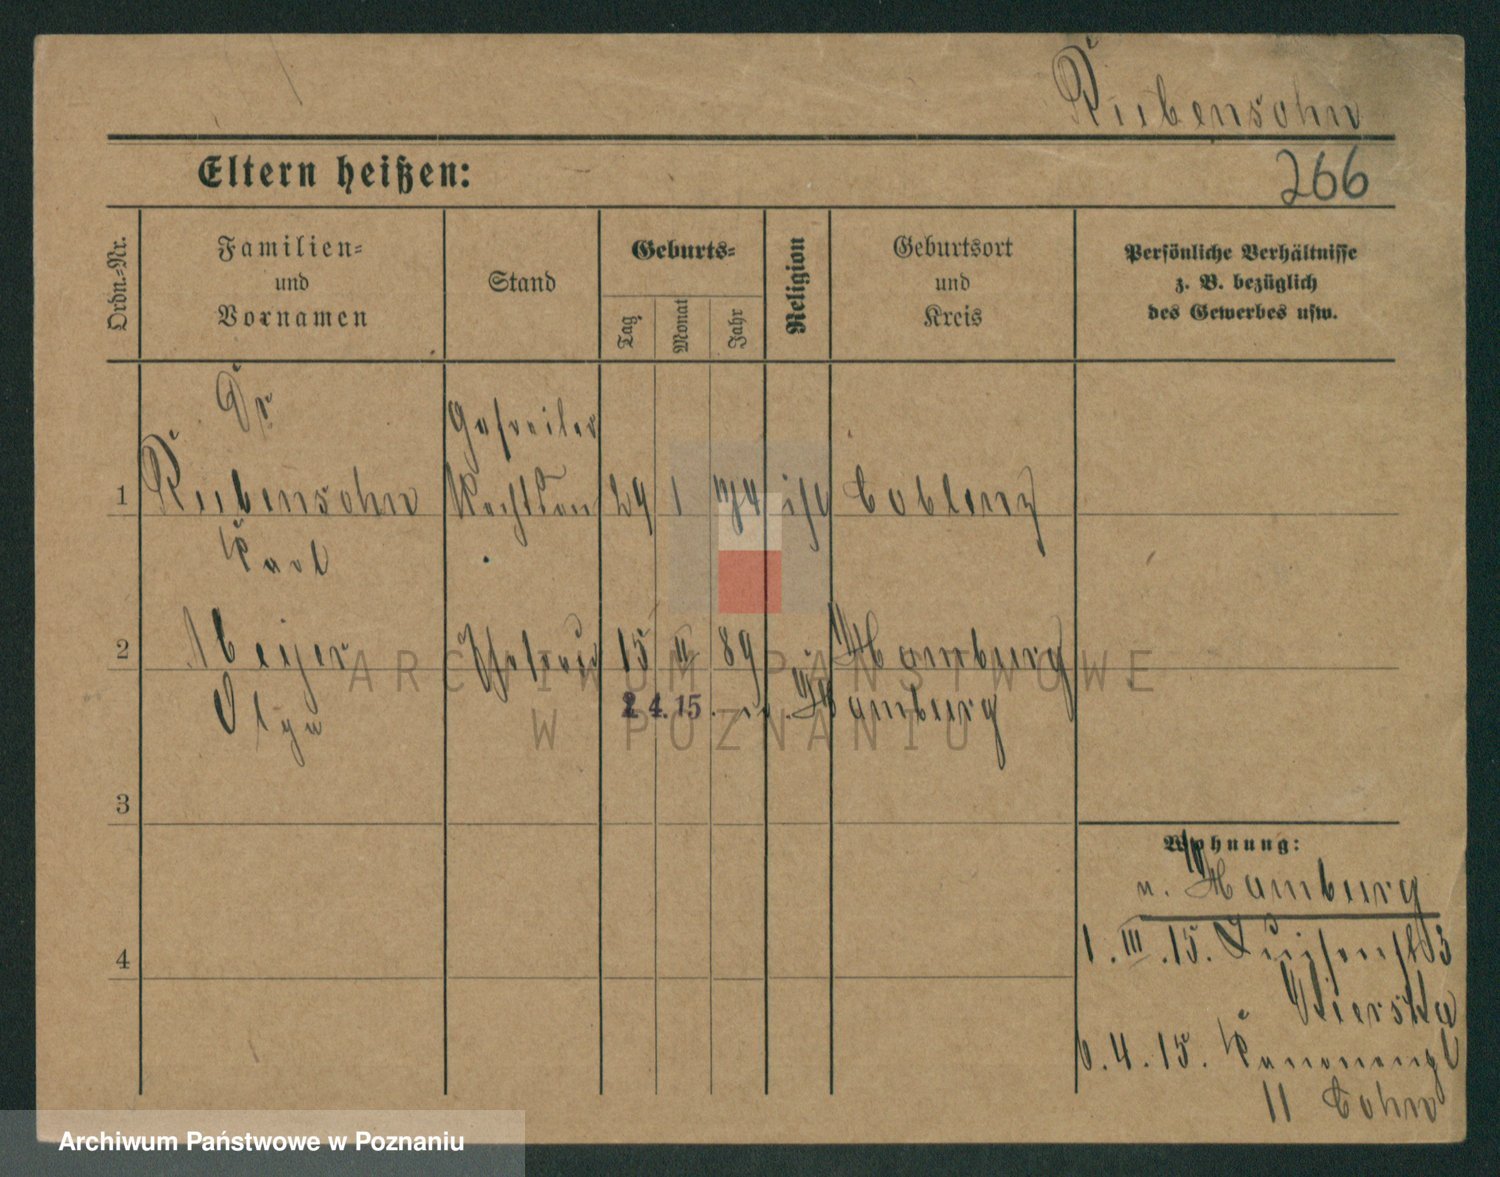 Rubensohn
Eltern heißen:
266
Ordn.-Nr.
Familien-
und
Vornamen
Stand
Geburts-
Tag
Monat
Jahr
Religion
Geburtsort
und
Kreis
Persönliche Verhältnisse
z. B. bezüglich
des Gewerbes usw.
Dr
Gefreiter
1 Rubensohn 29 1 74 isr Coblenz
Karl
2 Meijer Ehefrau 15 II 89 Hamburg
Olga 2 4. 15 n. Hamburg
3
4
Wohnung:
n. Hamburg
1. III. 15. Luisenst 3
6. 4. 15. Kanonenpl
11 Cohn
ARCHIWUM PAŃSTWOWE
W POZNANIU
Archiwum Państwowe w Poznaniu